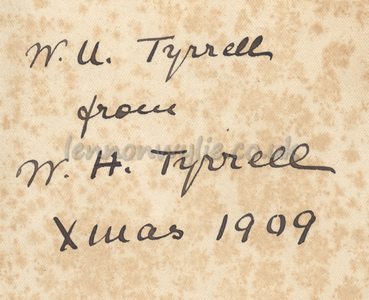 W. U. Tyrrell
from
lennonwylie.co.uk
W. H. Tyrrell
Xmas 1909